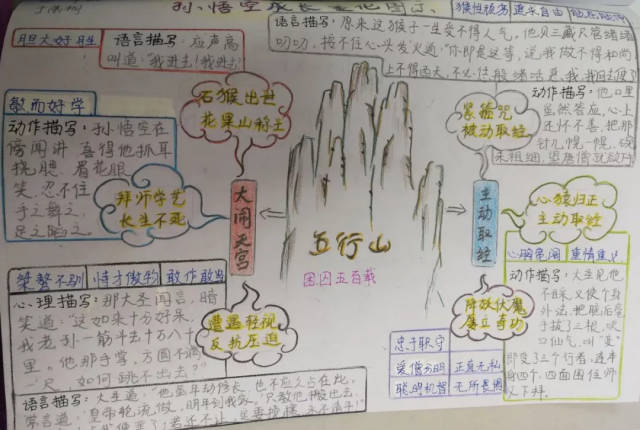 孙悟空成长变化图
胆大好胜
语言描写：应声高
叫道："我进去！我进去！
猴性顽劣
追求自由
语言描写：原来这猴子一生受不得人气，他见三藏只管绪绪
叨叨，按不住心头发火道："你即是这等，说我做不得和尚
上不得西天，不必
石猴出世
花果山称王
紧箍咒
被动取经
动作描写：他口里
虽然答应，心上
还怀不善，把那
针儿幌一幌，碗
来粗细，望唐僧就欲
敏而好学
动作描写：孙悟空在
傍闻讲，喜得他抓耳
挠腮，眉花眼
笑，忍不住
手之舞之，
足之蹈之。
拜师学艺
长生不死
大闹天宫
五行山
困囚五百载
主动取经
心猿归正
主动取经
心胸宽阔
重情重义
动作描写：大圣见他
不睬，又使个身
外法，把脑后毫
手拔了三根，吹
口仙气，叫"变"
即变了三个行者，连本
身四个，四面围住师
父下拜。
桀骜不驯
恃才傲物
敢作敢当
心理描写：那大圣闻言，暗
笑道："这如来十分好呆，
我老孙一筋斗去十万八千
里。他那手掌，方圆不满
一尺，如何跳不出去？"
遭遇轻视
反抗压迫
降妖伏魔
屡立奇功
忠于职守
爱憎分明
正直无私
聪明机智
无所畏惧
语言描写：大圣道："他虽年劫修长，也不应久占在此。
常言道：'皇帝轮流做，明年到我家。'只教他搬出去，